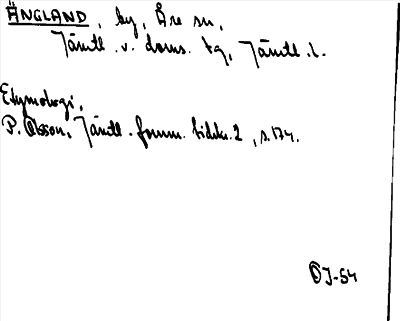 ÄNGLAND, by, Åre sn,
Jämtl. v. doms. tg, Jämtl. l.
Etymologi,
P. Olsson, Jämtl. fornm. tidskr. 2, s. 174.
OJ-54